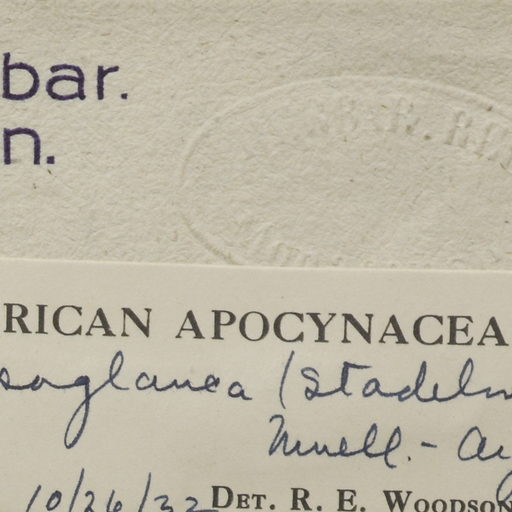 bar.
n.
RICAN APOCYNACEA
soglauca (Stadelm
Muell.-Arg
10/26/32 DET. R. E. WOODSON